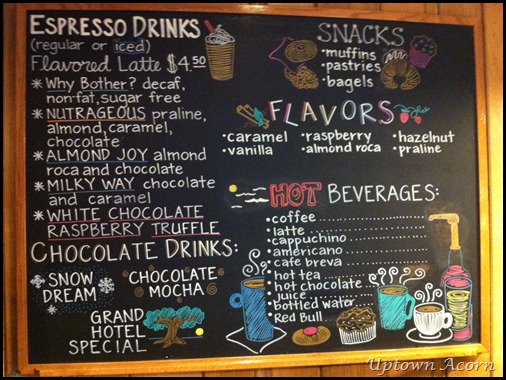 ESPRESSO DRINKS
(regular or iced)
Flavored Latte $4.50
* Why Bother? decaf,
nonfat, sugar free
* NUTRAGEOUS praline,
almond, caramel,
chocolate
* ALMOND JOY almond
roca and chocolate
* MILKY WAY chocolate
and caramel
* WHITE CHOCOLATE
RASPBERRY TRUFFLE
CHOCOLATE DRINKS:
SNOW
DREAM
CHOCOLATE
MOCHA
GRAND
HOTEL
SPECIAL
SNACKS
•muffins
•pastries
•bagels
FLAVORS
•caramel •raspberry •hazelnut
•vanilla •almond roca •praline
HOT BEVERAGES:
•coffee....................
•latte.......................
•cappuchino...............
•americano...............
•cafe breva...............
•hot tea..................
•hot chocolate.........
•juice.....................
•bottled water..
•Red Bull
Uptown Acorn